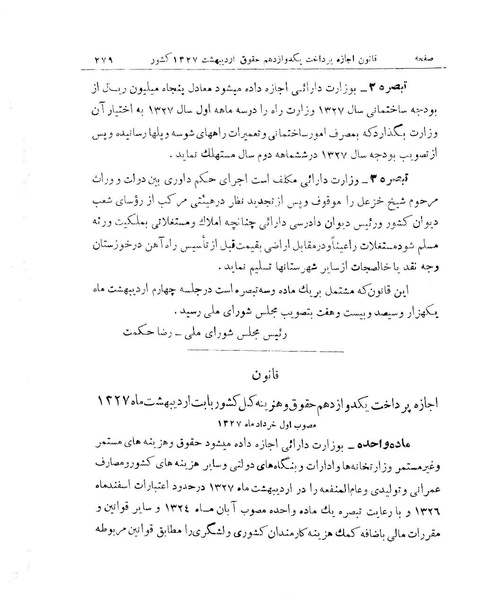 صفحه قانون اجازه پرداخت یکدوازدهم حقوق اردیبهشت ۱۳۲۷ کشور ۲۷۹
تبصره ۲ - بوزارت دارائی اجازه داده میشود معادل پنجاه میلیون ریال از
بودجه ساختمانی سال ۱۳۲۷ وزارت راه را درسه ماهه اول سال ۱۳۲۷ به اختیار آن
وزارت بگذارد که بمصرف امور ساختمانی و تعمیرات راههای شوسه و پلها رسانیده و پس
از تصویب بودجه سال ۱۳۲۷ درششماهه دوم سال مستهلك نماید .
تبصره ۳ - وزارت دارائی مکلف است اجرای حکم داوری بین دولت و وراث
مرحوم شیخ خزعل را موقوف و پس از تجدید نظر درهیئتی مرکب از رؤسای شعب
دیوان کشور و رئیس دیوان دادرسی دارائی چنانچه املاك و مستغلاتی بملکیت ورثه
مسلم شود مستغلات را عیناً و درمقابل اراضی بقیمت قبل از تأسیس راه آهن درخوزستان
وجه نقد یا خالصجات از سایر شهرستانها تسلیم نماید .
این قانون که مشتمل بر یك ماده وسه تبصره است درجلسه چهارم اردیبهشت ماه
یکهزار و سیصد و بیست و هفت بتصویب مجلس شورای ملی رسید .
رئیس مجلس شورای ملی - رضا حکمت
قانون
اجازه پرداخت یکدوازدهم حقوق و هزینه کل کشور بابت اردیبهشت ماه ۱۳۲۷
مصوب اول خرداد ماه ۱۳۲۷
ماده واحده - بوزارت دارائی اجازه داده میشود حقوق و هزینه های مستمر
وغیر مستمر وزارتخانه‌ها و ادارات و بنگاه‌های دولتی وسایر هزینه های کشور و مصارف
عمرانی و تولیدی و عام المنفعه را در اردیبهشت ماه ۱۳۲۷ درحدود اعتبارات اسفندماه
۱۳۲۶ و با رعایت تبصره یك ماده واحده مصوب آبان مـاه ۱۳۲۴ و سایر قوانین و
مقررات مالی باضافه کمك هزینه کارمندان کشوری و لشگری را مطابق قوانین مربوطه